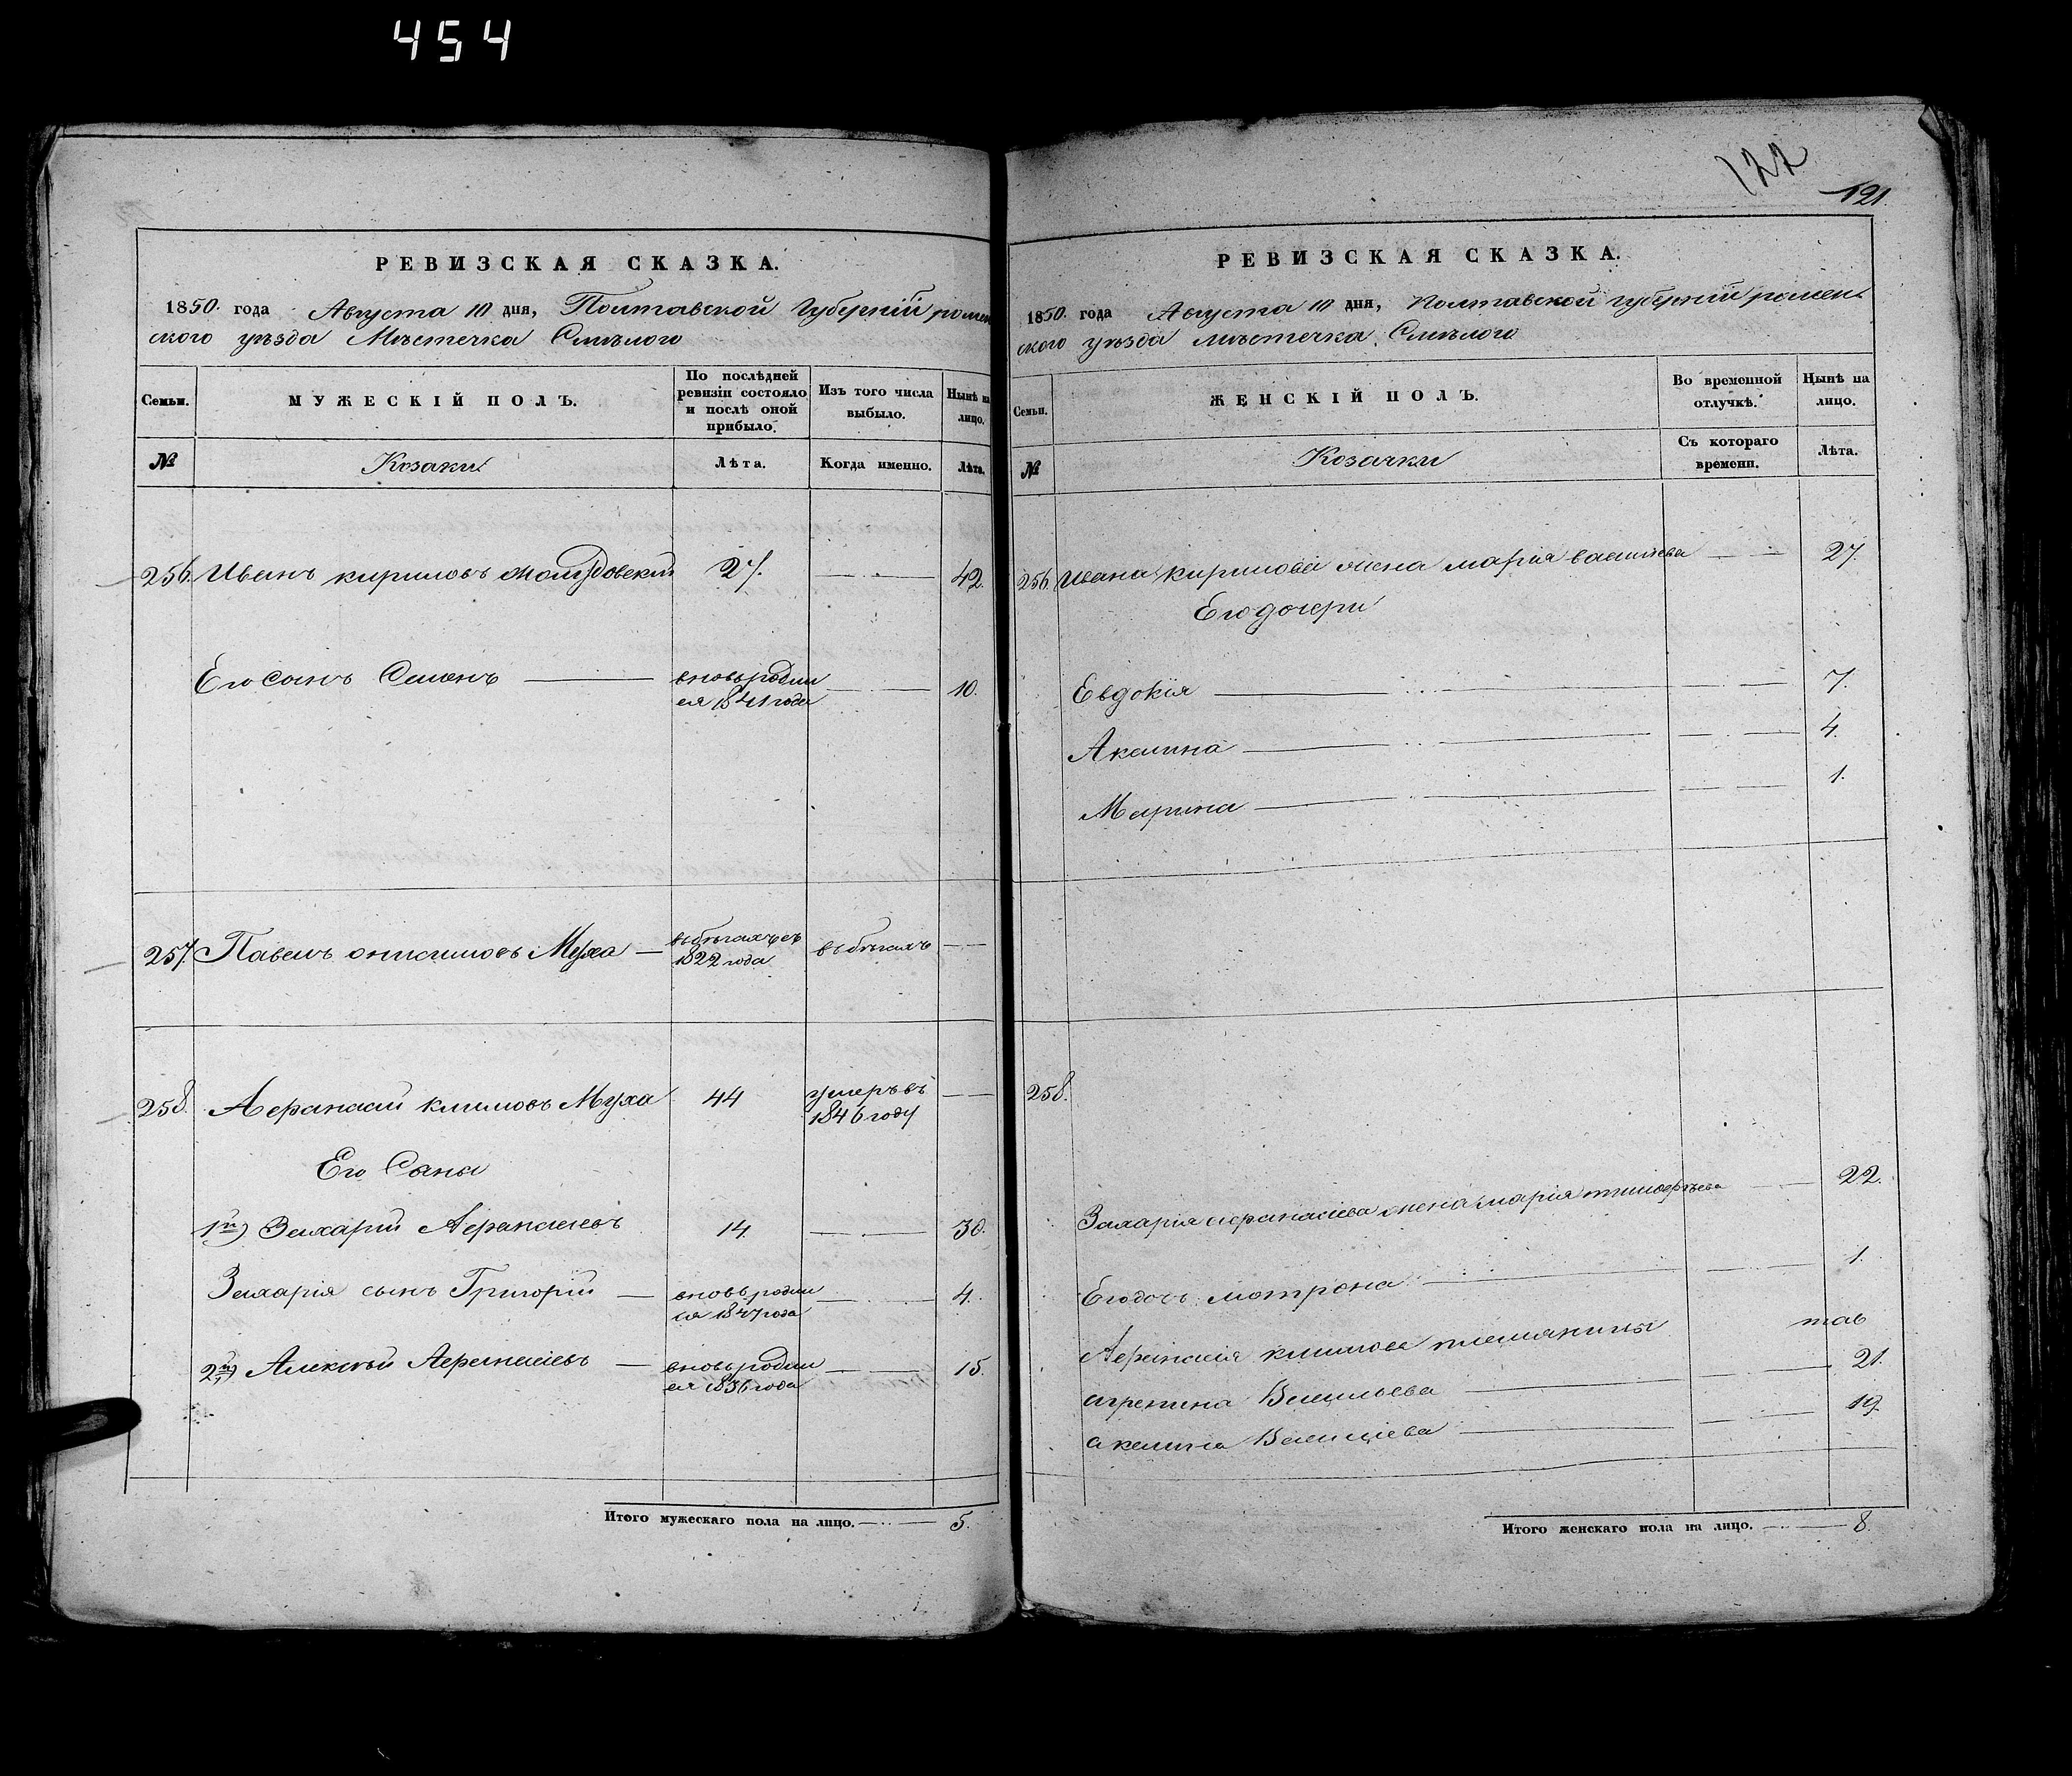 454
РЕВИЗСКАЯ СКАЗКА.
1850. года Августа 10 дня, Полтавской Губерніи ромен
ского уѣзда Мѣстечка Смѣлого
Семьи.
МУЖЕСКІЙ ПОЛЪ.
По послѣдней
ревизіи состояло
и послѣ оной
прибыло.
Изъ того числа
выбыло.
Нынѣ на
лицо.
№
Козаки
Лѣта.
Когда именно.
Лѣта.
256. Иванъ кириловъ 27. 42.
Его сынъ Семенъ вновь родил 10.
ся 1841 года
257. Павелъ онисимовъ Муха въ бѣгахъ съ въ бѣгахъ
1822 года
258. Афанасій климовъ Муха 44 умеръ въ
1846 году
Его Сыны
1й) Захарій Афанасіевъ 14. 30.
Захарія сынъ Григорій вновь родил 4.
ся 1847 года
2й) Алексѣй Афанасіевъ вновь родил 15.
ся 1836 года
Итого мужескаго пола на лицо. 5.
122
121
РЕВИЗСКАЯ СКАЗКА.
1850. года Августа 10 дня, Полтавской губерніи ромен
ского уѣзда мѣстечка Смѣлого
Семьи.
ЖЕНСКІЙ ПОЛЪ.
Во временной
отлучкѣ.
Нынѣ на
лицо.
№
Козачки
Съ котораго
времени.
Лѣта.
256. Ивана кирилова жена марія василіева 27.
Его дочери
Евдокія 7.
Акилина 4.
Марина 1.
258.
Захарія афанасіева жена марія тимофѣева 22.
Его дочь мотрона 1.
Афанасія климова племянницы
21.
агрепина Васильева
19.
акилина Василіева
Итого женскаго пола на лицо. 8.